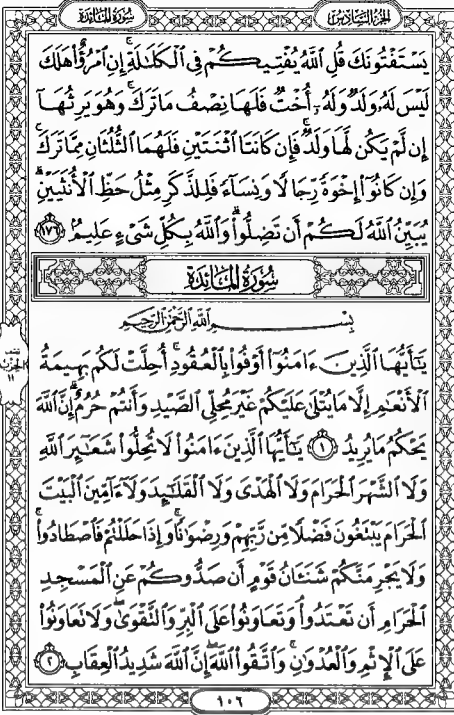 سُورَةُ المَائِدَةِ
الجُزْءُ السَّادِسُ
يَسْتَفْتُونَكَ قُلِ ٱللَّهُ يُفْتِيكُمْ فِى ٱلْكَلَـٰلَةِ ۚ إِنِ ٱمْرُؤٌا۟ هَلَكَ
لَيْسَ لَهُۥ وَلَدٌ وَلَهُۥٓ أُخْتٌ فَلَهَا نِصْفُ مَا تَرَكَ ۚ وَهُوَ يَرِثُهَآ
إِن لَّمْ يَكُن لَّهَا وَلَدٌ ۚ فَإِن كَانَتَا ٱثْنَتَيْنِ فَلَهُمَا ٱلثُّلُثَانِ مِمَّا تَرَكَ ۚ
وَإِن كَانُوٓا۟ إِخْوَةً رِّجَالًا وَنِسَآءً فَلِلذَّكَرِ مِثْلُ حَظِّ ٱلْأُنثَيَيْنِ ۗ
يُبَيِّنُ ٱللَّهُ لَكُمْ أَن تَضِلُّوا۟ ۗ وَٱللَّهُ بِكُلِّ شَىْءٍ عَلِيمٌۢ ١٧٦
سُورَةُ المَائِدَةِ
بِسْمِ ٱللَّهِ ٱلرَّحْمَـٰنِ ٱلرَّحِيمِ
يَـٰٓأَيُّهَا ٱلَّذِينَ ءَامَنُوٓا۟ أَوْفُوا۟ بِٱلْعُقُودِ ۚ أُحِلَّتْ لَكُم بَهِيمَةُ
ٱلْأَنْعَـٰمِ إِلَّا مَا يُتْلَىٰ عَلَيْكُمْ غَيْرَ مُحِلِّى ٱلصَّيْدِ وَأَنتُمْ حُرُمٌ ۗ إِنَّ ٱللَّهَ
يَحْكُمُ مَا يُرِيدُ ١ يَـٰٓأَيُّهَا ٱلَّذِينَ ءَامَنُوا۟ لَا تُحِلُّوا۟ شَعَـٰٓئِرَ ٱللَّهِ
وَلَا ٱلشَّهْرَ ٱلْحَرَامَ وَلَا ٱلْهَدْىَ وَلَا ٱلْقَلَـٰٓئِدَ وَلَآ ءَآمِّينَ ٱلْبَيْتَ
ٱلْحَرَامَ يَبْتَغُونَ فَضْلًا مِّن رَّبِّهِمْ وَرِضْوَٰنًا ۚ وَإِذَا حَلَلْتُمْ فَٱصْطَادُوا۟ ۚ
وَلَا يَجْرِمَنَّكُمْ شَنَـَٔانُ قَوْمٍ أَن صَدُّوكُمْ عَنِ ٱلْمَسْجِدِ
ٱلْحَرَامِ أَن تَعْتَدُوا۟ ۘ وَتَعَاوَنُوا۟ عَلَى ٱلْبِرِّ وَٱلتَّقْوَىٰ ۖ وَلَا تَعَاوَنُوا۟
عَلَى ٱلْإِثْمِ وَٱلْعُدْوَٰنِ ۚ وَٱتَّقُوا۟ ٱللَّهَ ۖ إِنَّ ٱللَّهَ شَدِيدُ ٱلْعِقَابِ ٢
نصف
الحزب
١١
١٠٦